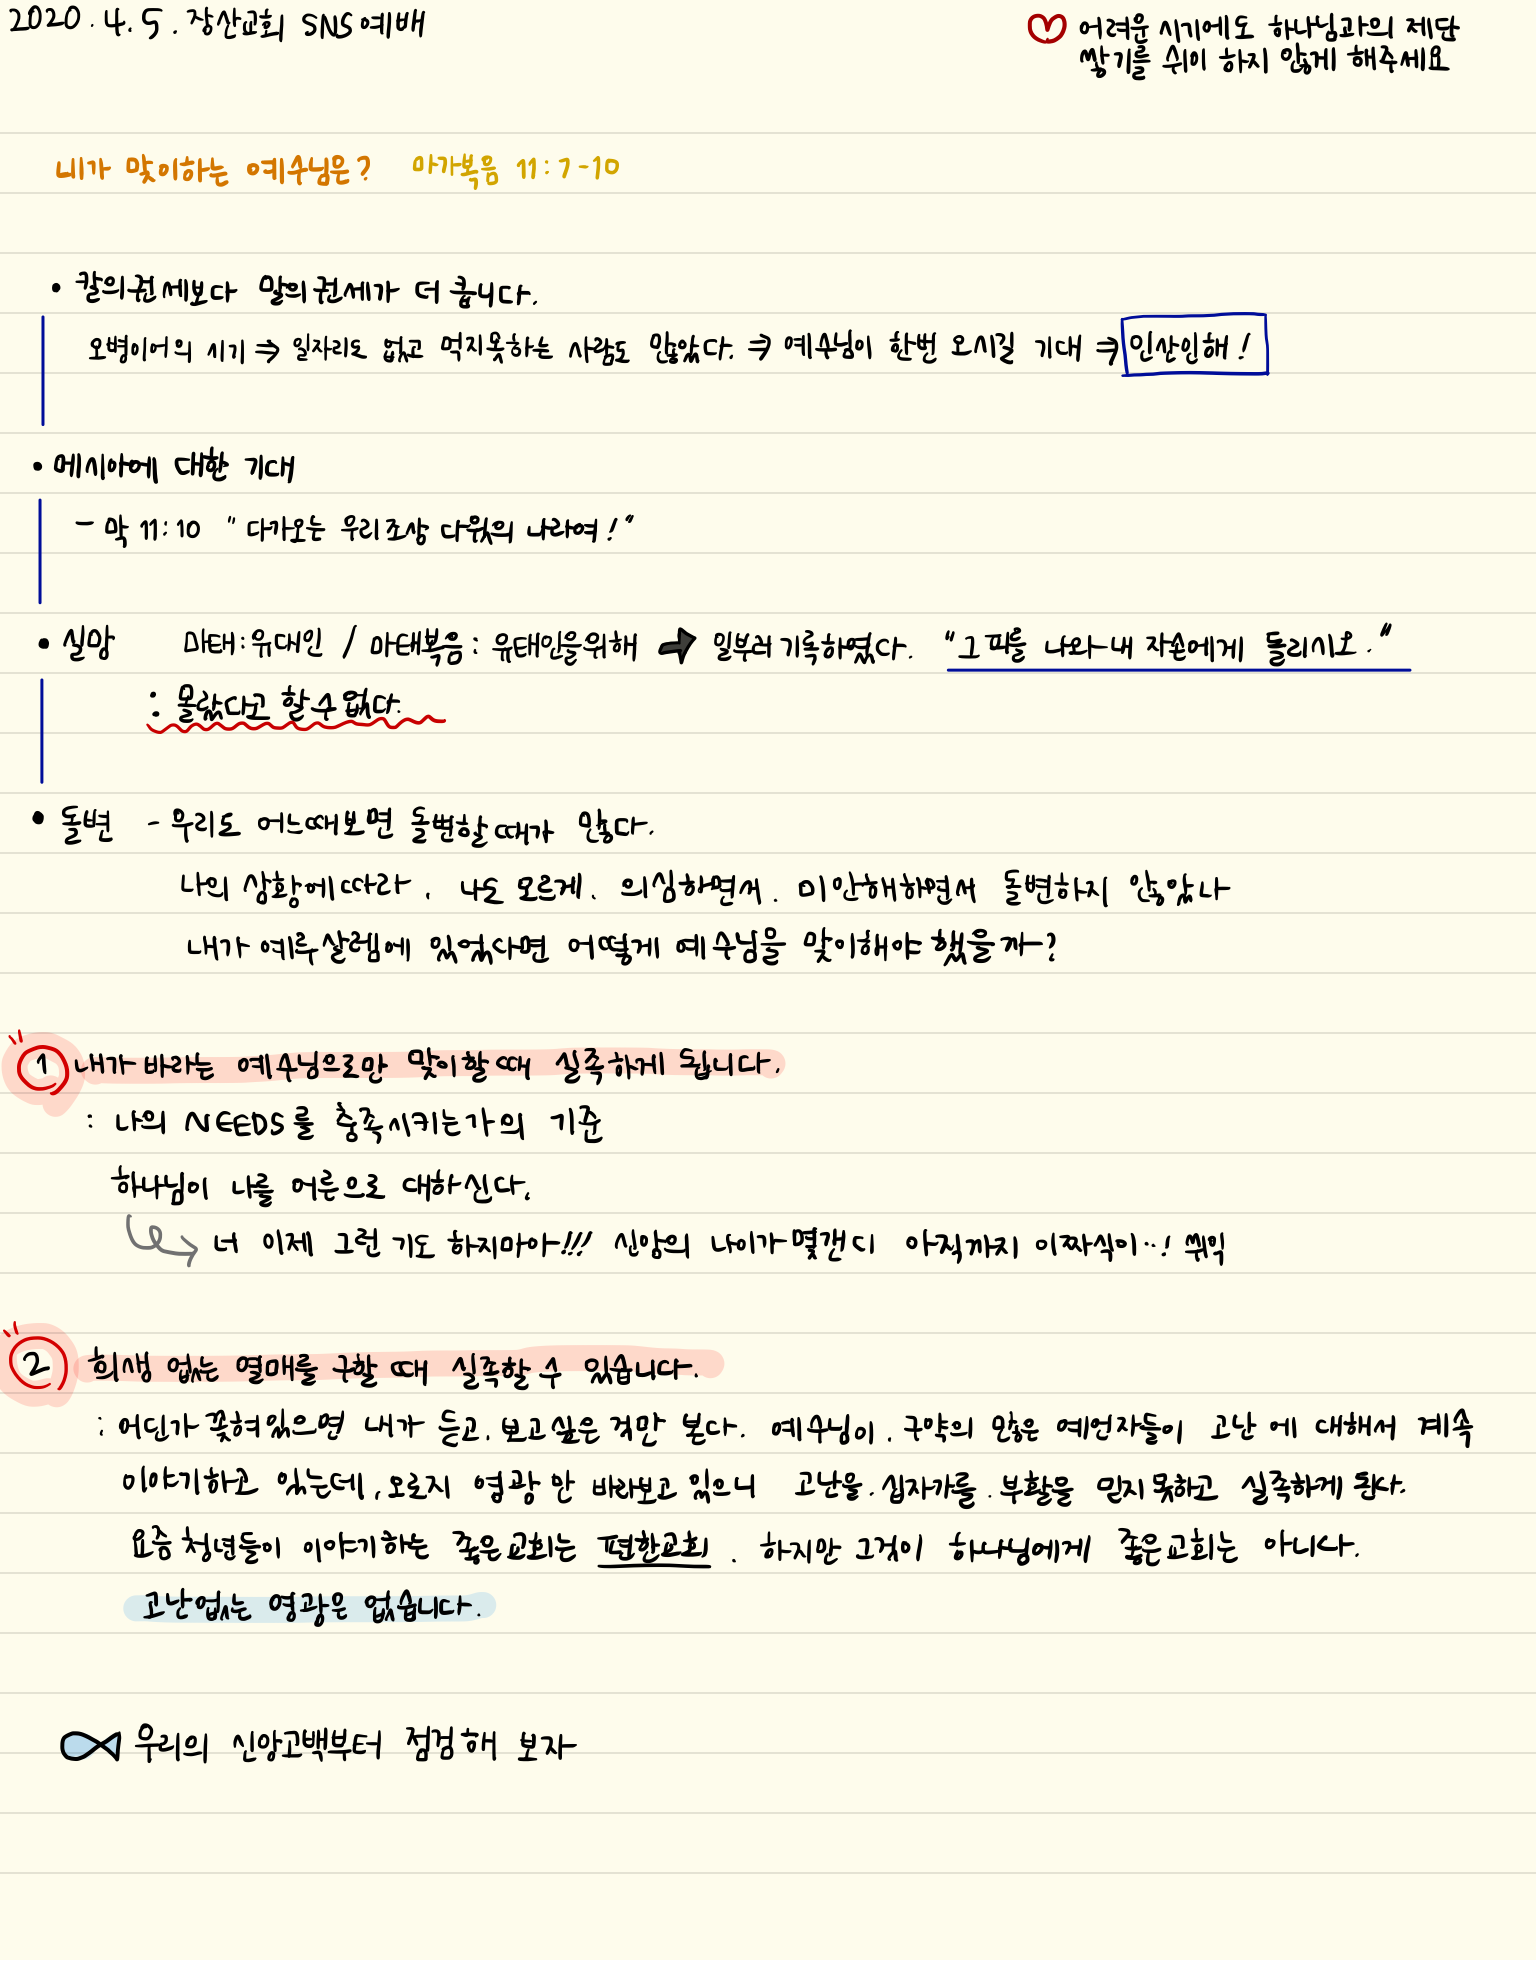 2020.4.5. 장산교회 SNS예배
♡ 어려운 시기에도 하나님과의 제단
쌓기를 쉬이 하지 않게 해주세요
내가 맞이하는 예수님은? 마가복음 11:7-10
• 칼의권세보다 말의권세가 더 큽니다.
오병이어의 시기 ⇒ 일자리도 없고 먹지못하는 사람도 많았다. ⇒ 예수님이 한번 오시길 기대 ⇒ 인산인해!
• 메시아에 대한 기대
- 막 11:10 "다가오는 우리조상 다윗의 나라여!"
• 실망 마태:유대인 / 마태복음: 유태인을위해 ➡ 일부러기록하였다. "그 피를 나와 내 자손에게 돌리시오."
: 몰랐다고 할수없다.
• 돌변 - 우리도 어느때보면 돌변할때가 많다.
나의 상황에따라, 나도 모르게, 의심하면서, 미안해하면서 돌변하지 않았나
내가 예루살렘에 있었다면 어떻게 예수님을 맞이해야 했을까?
① 내가 바라는 예수님으로만 맞이할때 실족하게 됩니다.
: 나의 NEEDS를 충족시키는가의 기준
하나님이 나를 어른으로 대하신다.
너 이제 그런 기도 하지마아!!! 신앙의 나이가 몇갠디 아직까지 이짜식이..! 쒸익
② 희생 없는 열매를 구할 때 실족할 수 있습니다.
: 어딘가 꽂혀있으면 내가 듣고, 보고싶은 것만 본다. 예수님이, 구약의 많은 예언자들이 고난 에 대해서 계속
이야기하고 있는데, 오로지 영광 만 바라보고 있으니 고난을, 십자가를, 부활을 믿지 못하고 실족하게 된다.
요즘 청년들이 이야기하는 좋은교회는 편한교회. 하지만 그것이 하나님에게 좋은교회는 아니다.
고난없는 영광은 없습니다.
우리의 신앙고백부터 점검해 보자